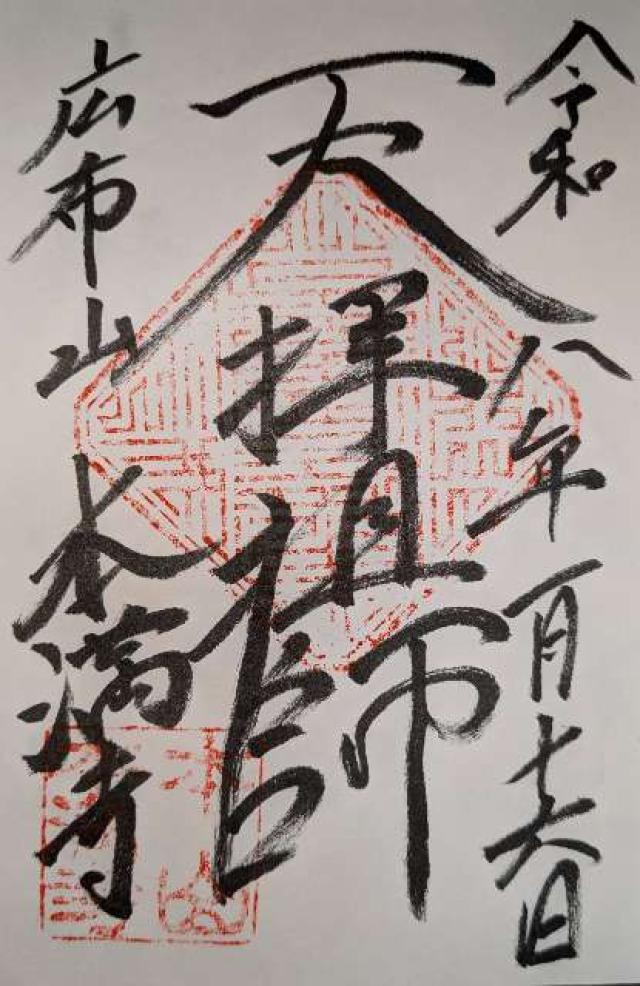 令和八年一月十六日
天拝祖師
広布山
本満寺